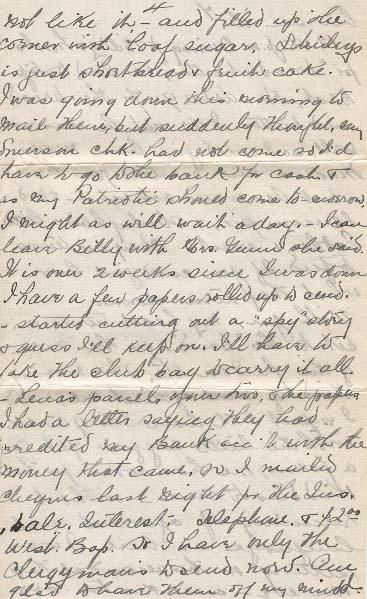 4
not like it - and filled up the
corner with loaf sugar. Shirleys
is just shortbread & fruit cake.
I was going down this morning to
mail them, but suddenly thought, my
Emerson chk. had not come so I'd
have to go to the bank for cash &
as my Patriotic should come to-morrow
I might as will wait a day. - I can
leave Billy with Mrs. she said.
It is over 2 weeks since I was down
I have a few papers rolled up to send.
- started cutting out a "spy" story
& guess I'll keep on. I'll have to
take the club bag to carry it all.
- Lena's panel, your two, & the papers
I had a letter saying they had
credited my Bank acc't with the
money that came, so I mailed
cheques last night for the Ins.
, bale. Interest - Telephone. & $2.00
West. Bap. So I have only the
Clergyman's to send now. Am
glad to have them off my mind -